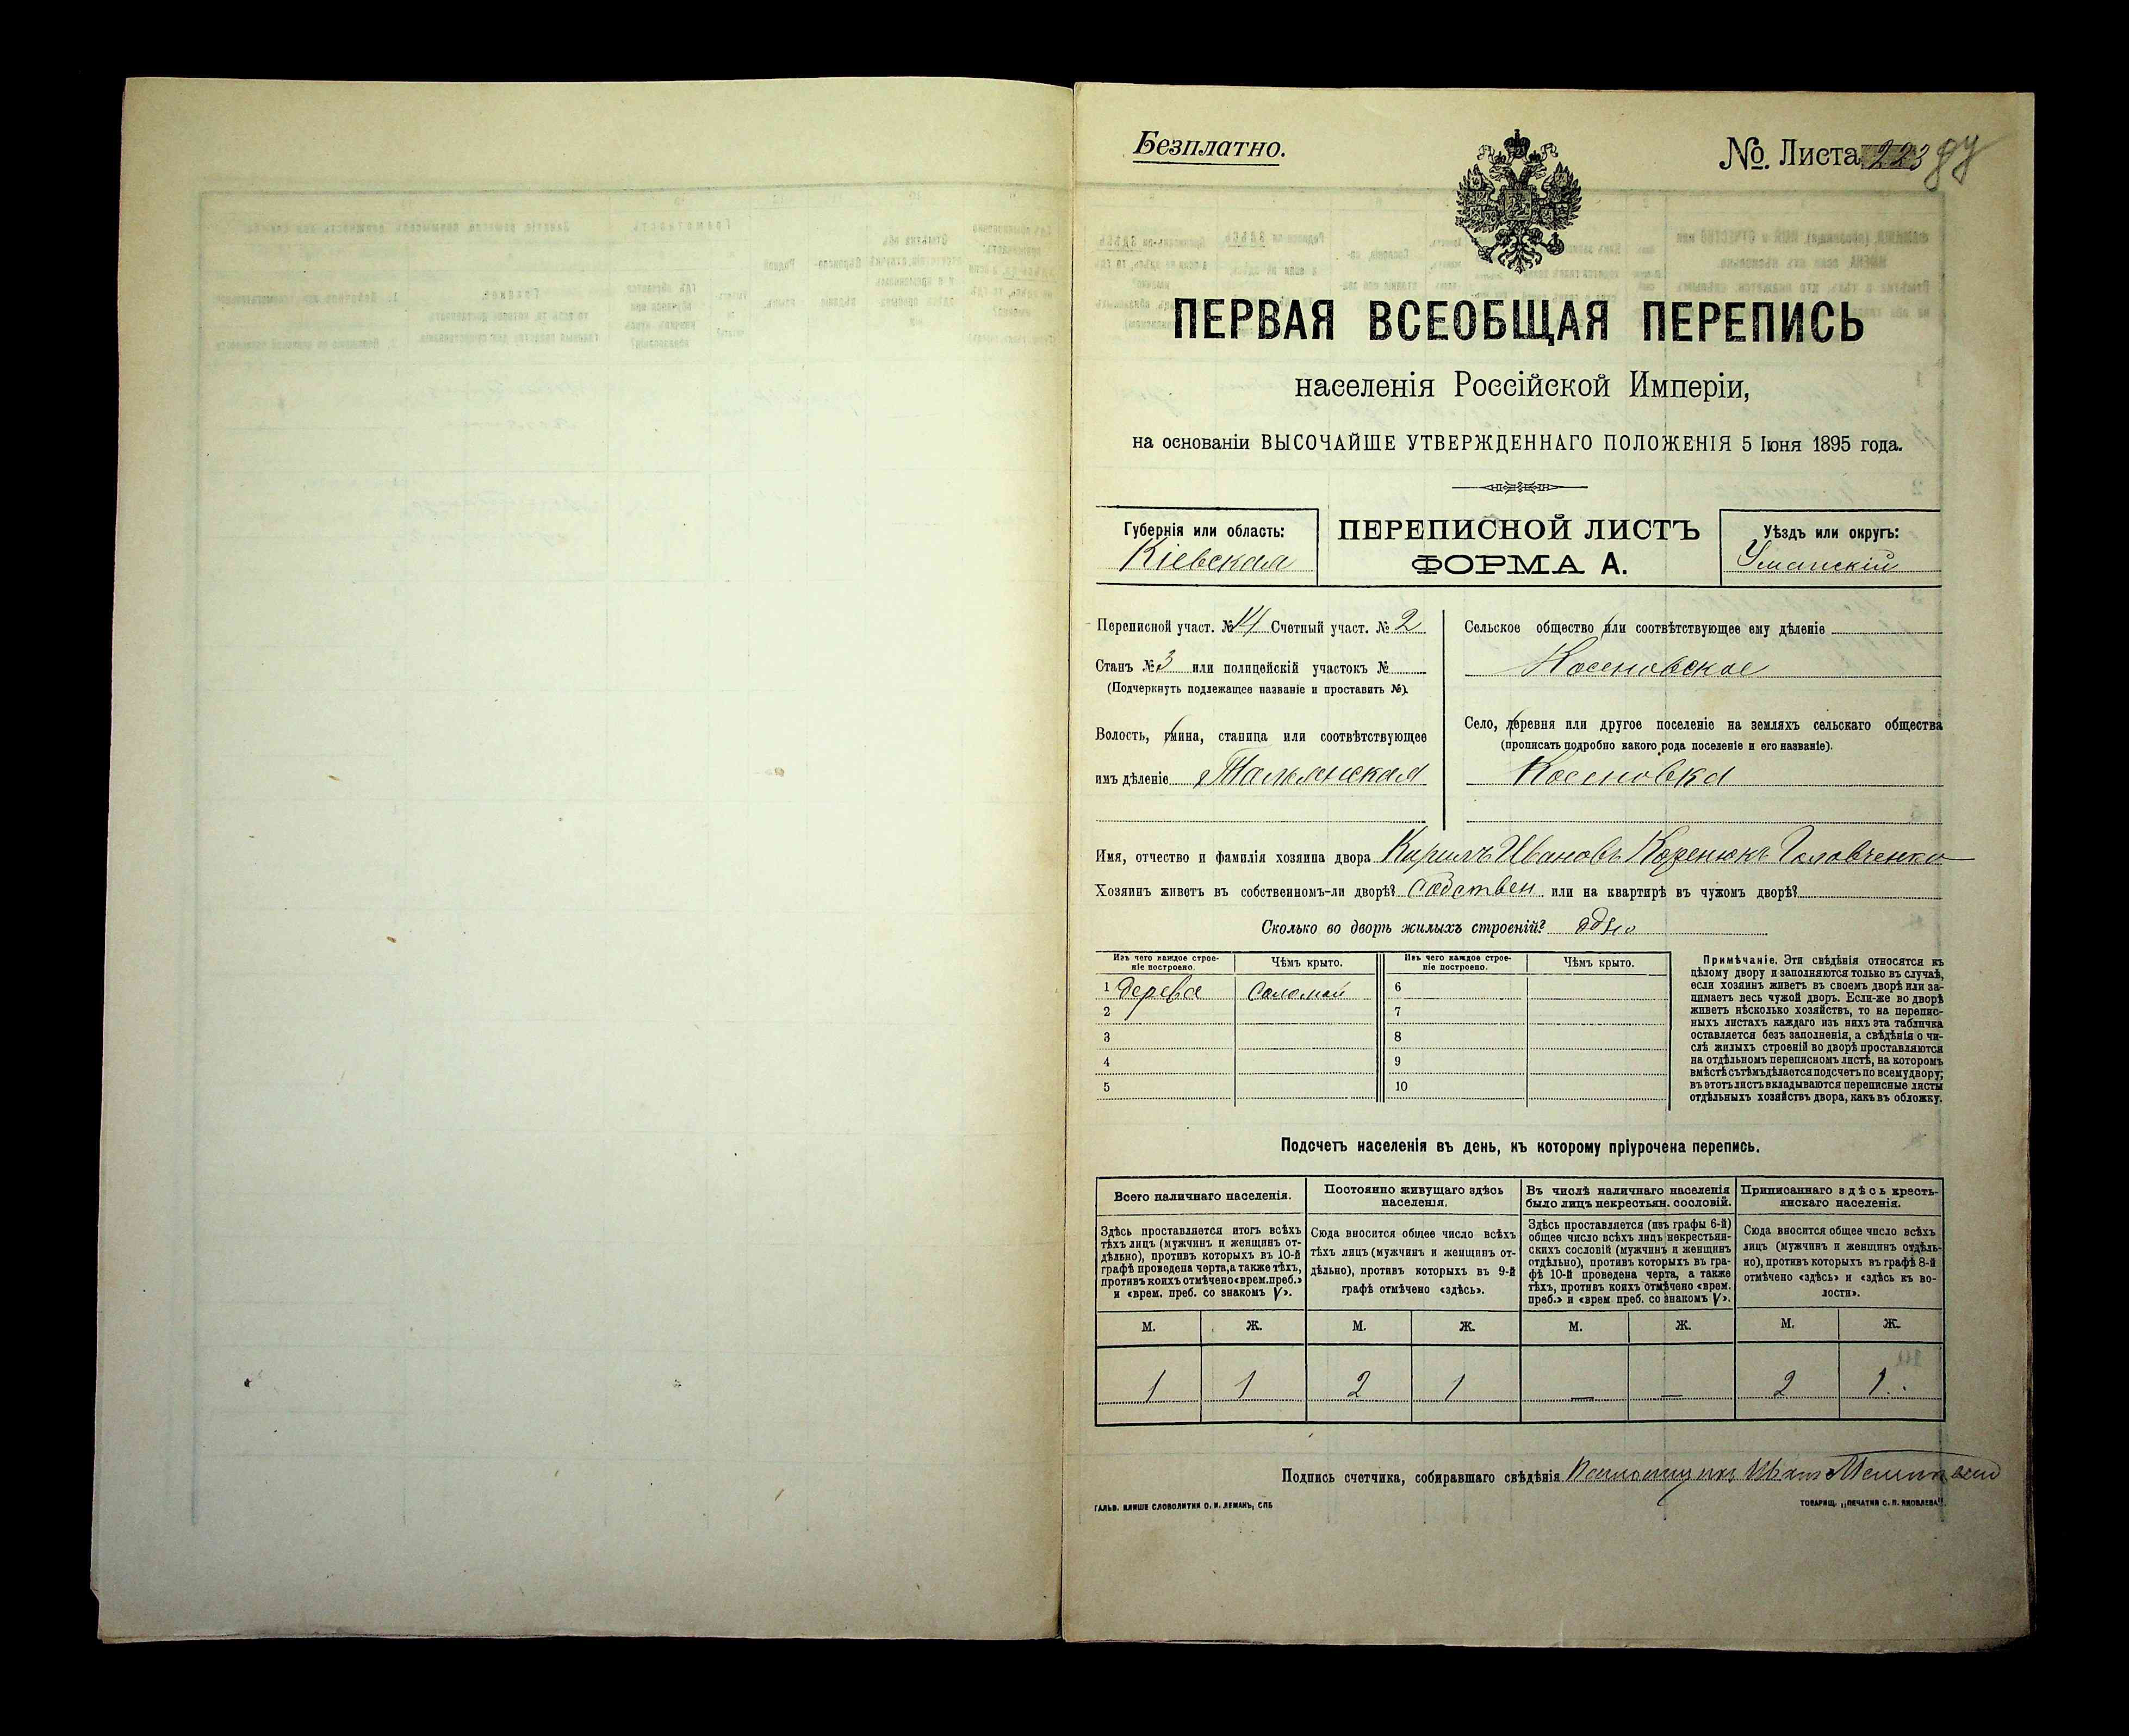 Безплатно.
№. Листа 223
ПЕРВАЯ ВСЕОБЩАЯ ПЕРЕПИСЬ
населенія Россійской Имперіи,
на основаніи ВЫСОЧАЙШЕ УТВЕРЖДЕННАГО ПОЛОЖЕНІЯ 5 Іюня 1895 года.
Губернія или область:
Кіевская
ПЕРЕПИСНОЙ ЛИСТЪ
ФОРМА А.
Уѣздъ или округъ:
Уманскій
Переписной участ. № 14 Счетный участ. № 2
Станъ № 3 или полицейскій участокъ №
(Подчеркнуть подлежащее названіе и проставить №).
Волость, гмина, станица или соотвѣтствующее
имъ дѣленіе Тальянская
Сельское общество или соотвѣтствующее ему дѣленіе
Косеновское
Село, деревня или другое поселеніе на земляхъ сельскаго общества
(прописать подробно какого рода поселеніе и его названіе).
Косеновка
Имя, отчество и фамилія хозяина двора Кирилъ Ивановъ Коренюкъ Головченко
Хозяинъ живетъ въ собственномъ-ли дворѣ? Собствен или на квартирѣ въ чужомъ дворѣ?
Сколько во дворѣ жилыхъ строеній? одно
Изъ чего каждое строе-
ніе построено.
Чѣмъ крыто.
Изъ чего каждое строе-
ніе построено.
Чѣмъ крыто.
1 дерева Соломой 6
2 7
3 8
4 9
5 10
Примѣчаніе. Эти свѣдѣнія относятся къ
цѣлому двору и заполняются только въ случаѣ,
если хозяинъ живетъ въ своемъ дворѣ или за-
нимаетъ весь чужой дворъ. Если-же во дворѣ
живетъ нѣсколько хозяйствъ, то на перепис-
ныхъ листахъ каждаго изъ нихъ эта табличка
оставляется безъ заполненія, а свѣдѣнія о чи-
слѣ жилыхъ строеній во дворѣ проставляются
на отдѣльномъ переписномъ листѣ, на которомъ
вмѣстѣ съ тѣмъ дѣлается подсчетъ по всему двору;
въ этотъ листъ вкладываются переписные листы
отдѣльныхъ хозяйствъ двора, какъ въ обложку.
Подсчетъ населенія въ день, къ которому пріурочена перепись.
Всего наличнаго населенія.
Здѣсь проставляется итогъ всѣхъ
тѣхъ лицъ (мужчинъ и женщинъ от-
дѣльно), противъ которыхъ въ 10-й
графѣ проведена черта, а также тѣхъ,
противъ коихъ отмѣчено «врем. преб.»
и «врем. преб. со знакомъ V».
Постоянно живущаго здѣсь
населенія.
Сюда вносится общее число всѣхъ
тѣхъ лицъ (мужчинъ и женщинъ от-
дѣльно), противъ которыхъ въ 9-й
графѣ отмѣчено «здѣсь».
Въ числѣ наличнаго населенія
было лицъ некрестьян. сословій.
Здѣсь проставляется (изъ графы 6-й)
общее число всѣхъ лицъ некрестьян-
скихъ сословій (мужчинъ и женщинъ
отдѣльно), противъ которыхъ въ гра-
фѣ 10-й проведена черта, а также
тѣхъ, противъ коихъ отмѣчено «врем.
преб.» и «врем преб. со знакомъ V».
Приписаннаго здѣсь кресть-
янскаго населенія.
Сюда вносится общее число всѣхъ
лицъ (мужчинъ и женщинъ отдѣль-
но), противъ которыхъ въ графѣ 8-й
отмѣчено «здѣсь» и «здѣсь къ во-
лости».
М. Ж. М. Ж. М. Ж. М. Ж.
1 1 2 1 — — 2 1
Подпись счетчика, собиравшаго свѣдѣнія
ГАЛЬВ. КЛИШЕ СЛОВОЛИТНИ О. И. ЛЕМАНЪ, СПБ
ТОВАРИЩ. „ПЕЧАТНЯ С. П. ЯКОВЛЕВА“.